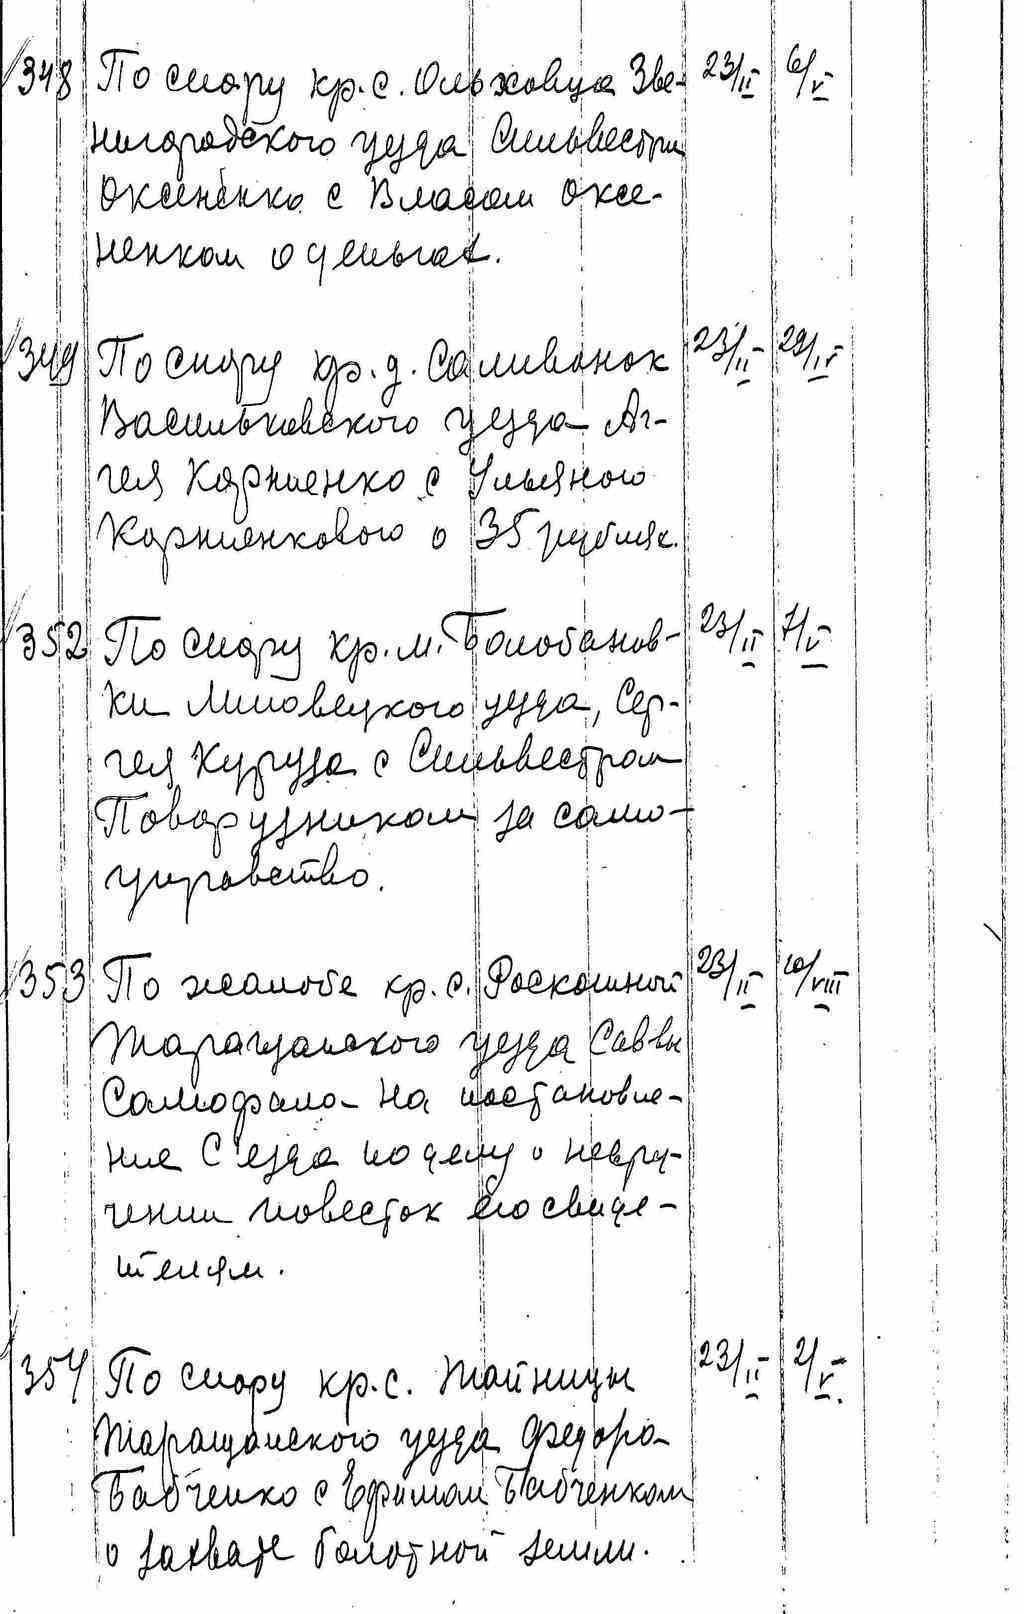 348 По спору кр. с. Ольховца Зве- 23/II 6/V
нигородского уезда Сильвестра
Оксененко с Власом Оксе-
ненком о деньгах.
349 По спору кр. д. Саливонок 23/II 29/IV
Васильковского уезда Аг-
гея Корниенко с Ульяного
Корниенкового о 35 рублях.
352 По спору кр. м. Балабанов- 23/II 7/V
ки Липовецкого уезда, Сер-
гея Куруза с Сильвестром
Поворузником за само-
управство.
353 По жалобе кр. с. Роскошной 23/II 10/VIII
Таращанского уезда Саввы
Самофала на постановле-
ние С'езда по делу о невру-
чении повесток его свиде-
телям.
354 По спору кр. с. Тайницы 23/II 2/V.
Таращанского уезда Федора
Бабченко с Ефимом Бабченком
о захвате болотной земли.